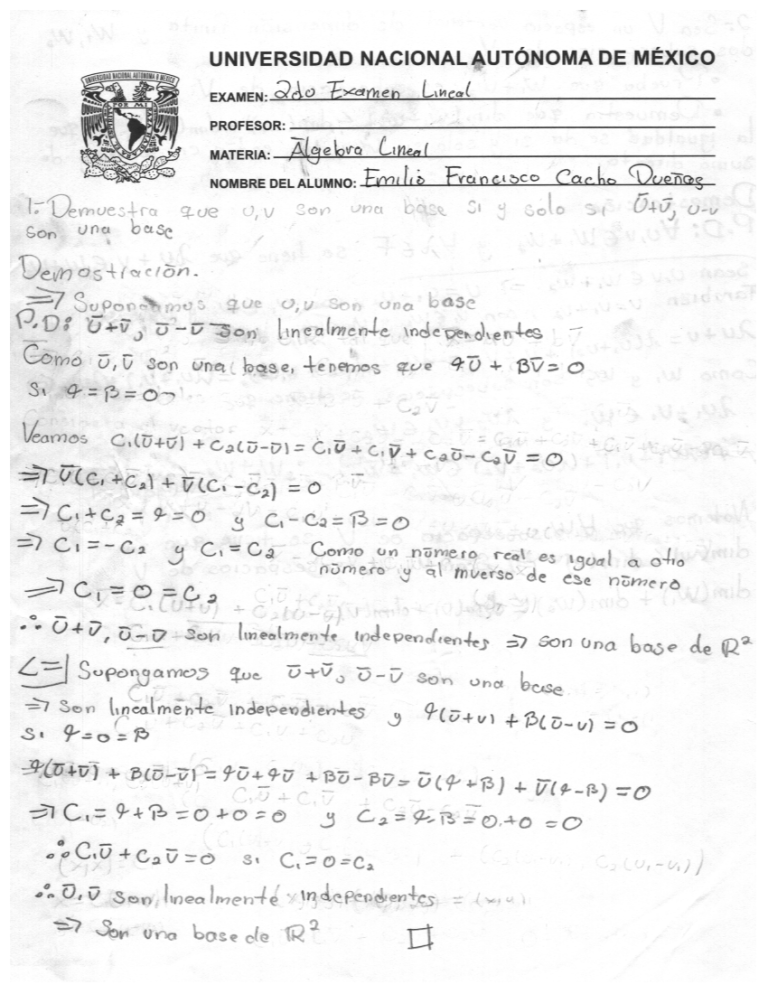 UNIVERSIDAD NACIONAL AUTÓNOMA DE MÉXICO
EXAMEN: 2do Examen Lineal
PROFESOR:
MATERIA: Álgebra Lineal
NOMBRE DEL ALUMNO: Emilio Francisco Cacho Dueñas
1.- Demuestra que u,v son una base si y solo si ū+v̄, u-v
son una base
Demostración.
=> Supongamos que u,v son una base
P.D: ū+v̄, ū-v̄ son linealmente independientes
Como ū, v̄ son una base, tenemos que αū + βv̄ = 0
Si α=β=0
Veamos C₁(ū+v̄) + C₂(ū-v̄) = C₁ū + C₁v̄ + C₂ū - C₂v̄ = 0
=> ū(C₁+C₂) + v̄(C₁-C₂) = 0
=> C₁+C₂ = α = 0 y C₁-C₂ = β = 0
=> C₁=-C₂ y C₁=C₂ Como un número real es igual a otro
número y al inverso de ese número
=> C₁=0=C₂
∴ ū+v̄, ū-v̄ son linealmente independientes => son una base de ℝ²
<=| Supongamos que ū+v̄, ū-v̄ son una base
=> Son linealmente independientes y α(ū+v) + β(ū-v) = 0
Si α=0=β
α(ū+v̄) + β(ū-v̄) = αū+αv̄ + βū-βv̄ = ū(α+β) + v̄(α-β) = 0
=> C₁= α+β = 0+0 = 0 y C₂= α-β = 0+0 = 0
∴ C₁ū + C₂v̄ = 0 si C₁=0=C₂
∴ ū, v̄ son linealmente independientes
=> Son una base de ℝ² □